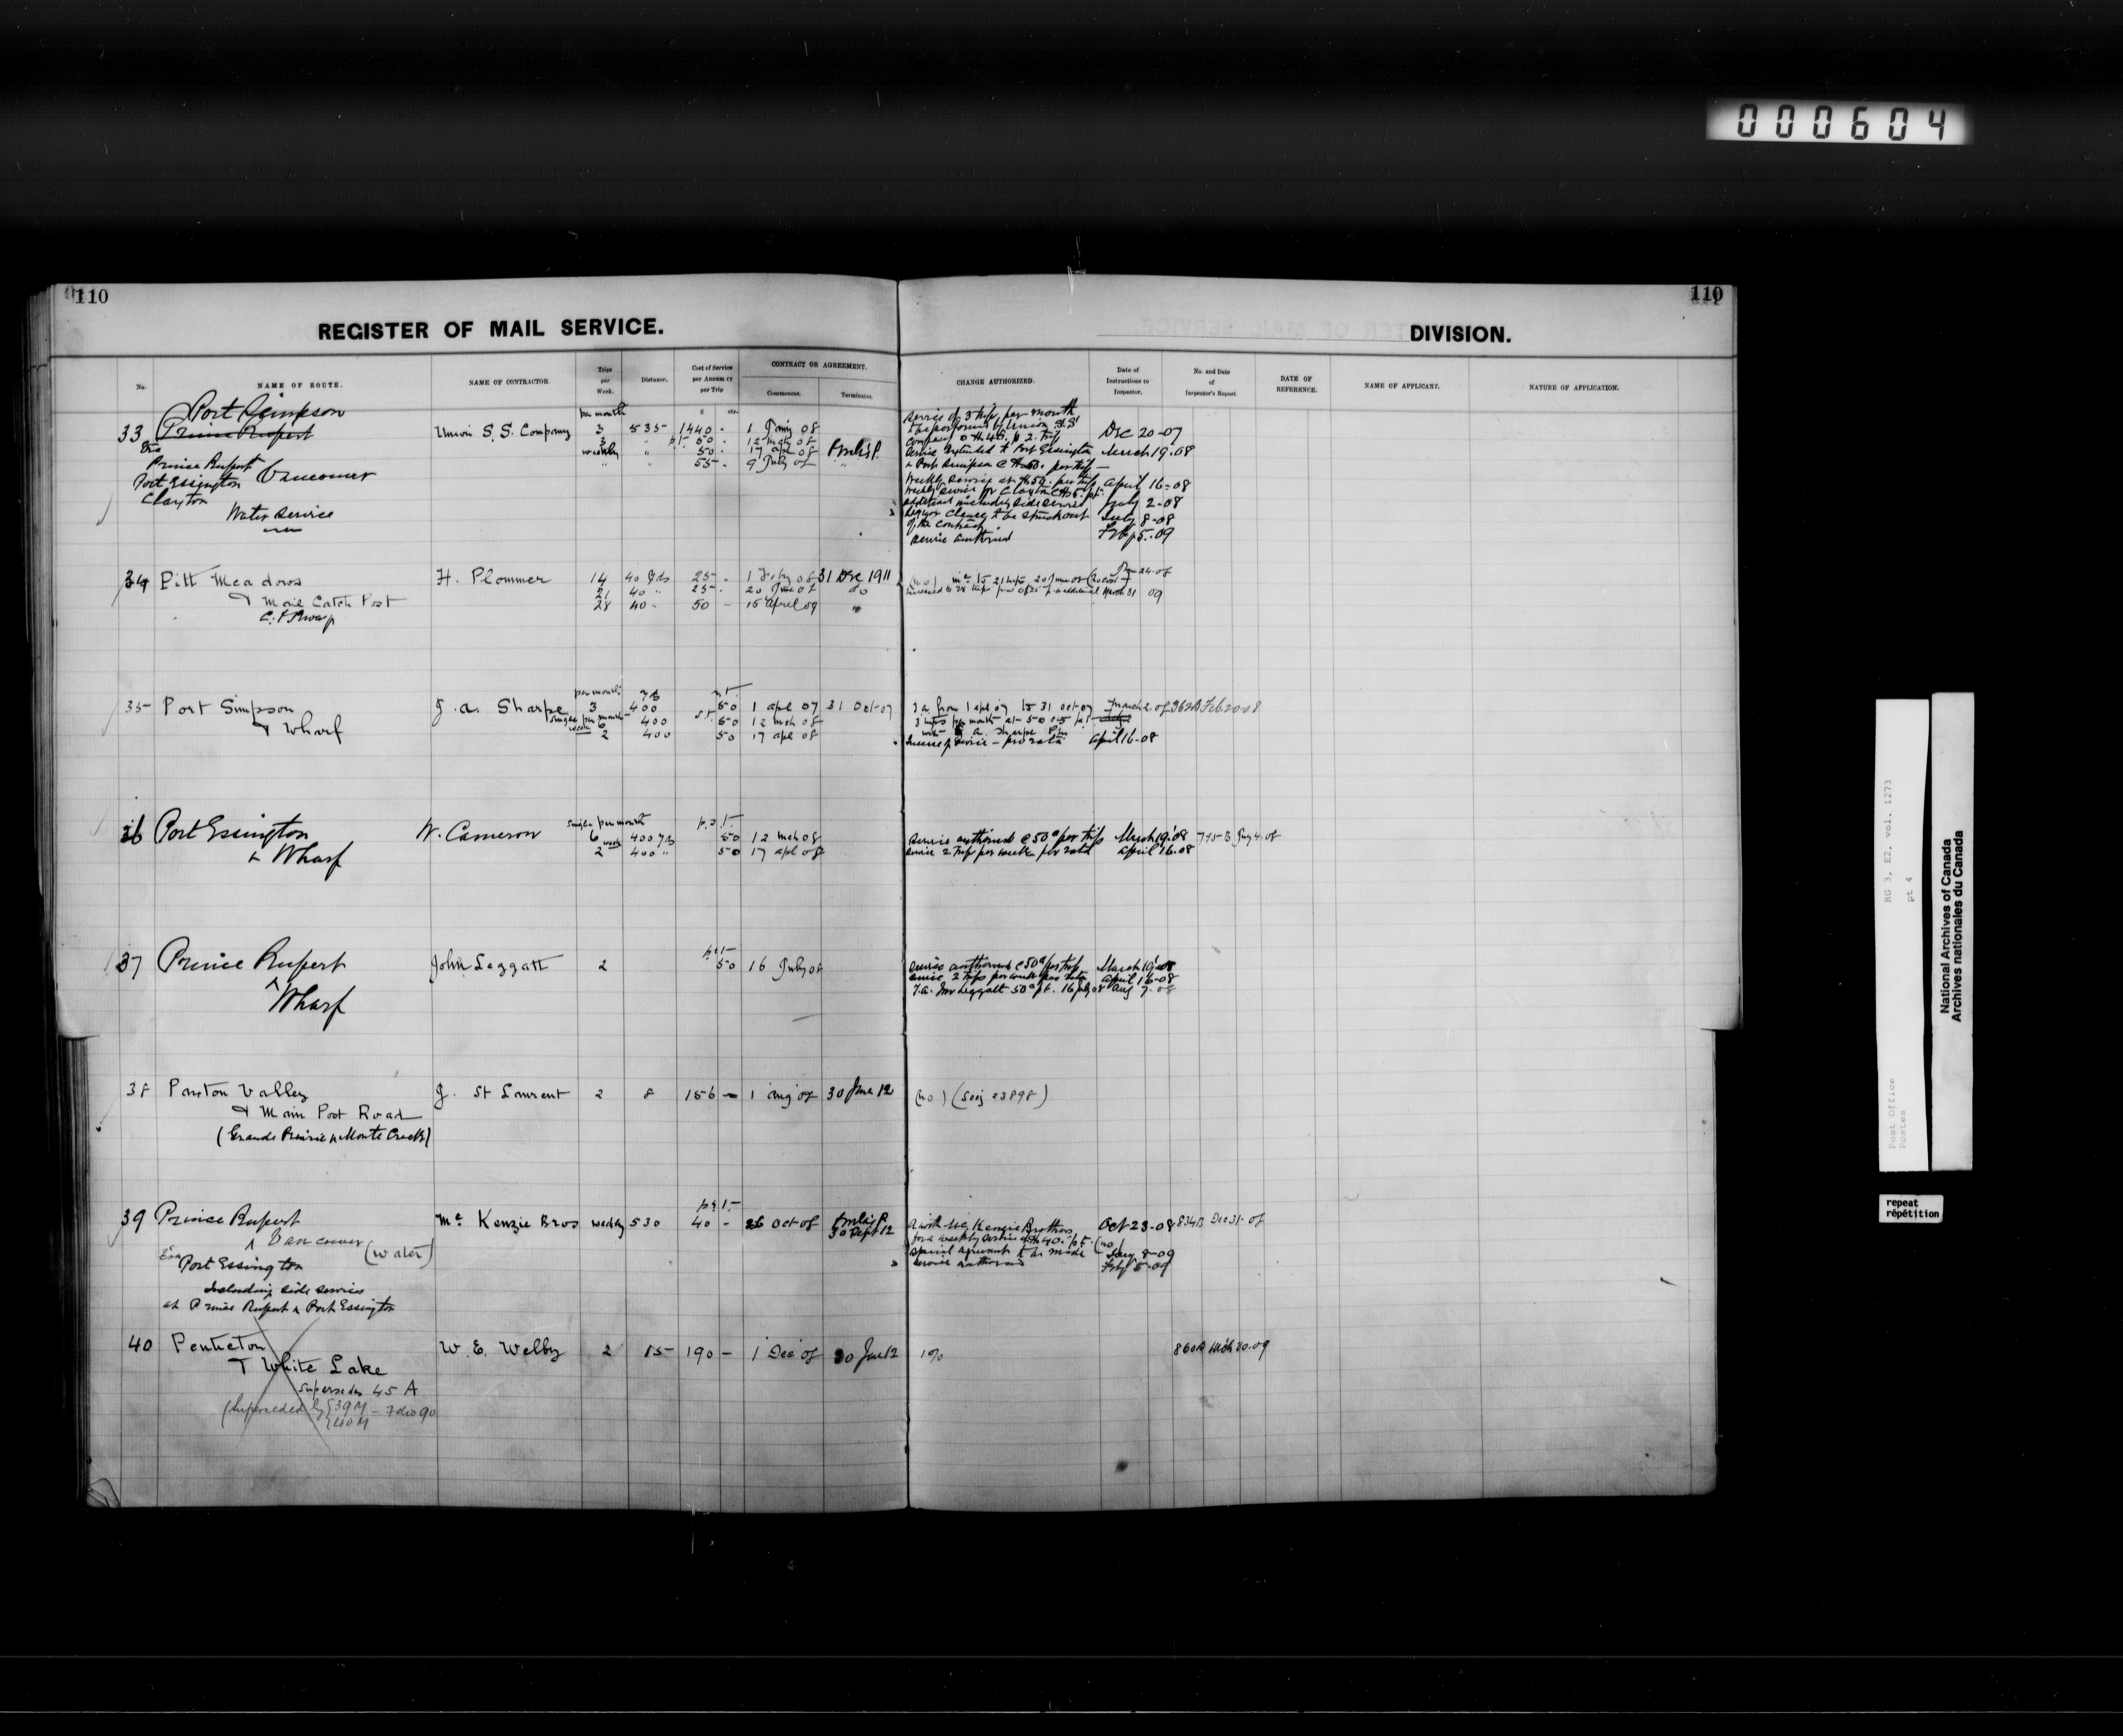 000604
110
110
REGISTER OF MAIL SERVICE.
DIVISION.
No.
NAME OF ROUTE.
NAME OF CONTRACTOR.
Trips per Week.
Distance.
Cost of Service per Annum or per Trip
CONTRACT OR AGREEMENT.
Commences.
Terminates.
CHANGE AUTHORIZED.
Date of Instructions to Inspector.
No. and Date of Inspector's Report.
DATE OF REFERENCE.
NAME OF APPLICANT.
NATURE OF APPLICATION.
Port Simpson
per month
$ cts.
Service of 3 trips per month
33 Prince Rupert Union S.S. Company 3 535 1440 - 1 Jany 08
to be performed by Union S.S.
Dec 20-07
3 " p.t. 50 - 12 mch 08
Via
weekly " 50 - 17 apl 08
Service extended to Port Essington March 19.08
Prince Rupert Vancouver
" " 55 - 9 July 08 "
& Port Simpson @ $50. per trip
Port Essington
Weekly service at $50. per trip April 16-08
Clayton
July 2-08
Water Service
July 8-08
of the contract
Feby 5-09
Service authorized
34 Pitt Meadows H. Plommer 14 40 yds 25 - 1 Feby 08 31 Dec 1911
& Mail Catch Post
21 40 " 25 - 20 June 08 do
C.P.Rway
28 40 " 50 - 15 April 09 "
March 31 09
per month yds p.t.
35 Port Simpson J. A. Sharpe 3 400 50 1 apl 07 31 Oct-07
3 a from 1 apl 07 to 31 oct-07 March 2.08 362B Feb.20.08
& Wharf
single per month 6 400 50 12 mch 08
3 trips per month at 50 cts p.t.
week 2 400 50 17 apl 08
with J. A. Sharpe P.M.
Increase service - pro rata April 16-08
single per month p.t.
36 Port Essington W. Cameron 6 400 yds 50 12 mch 08
Service authorized @ 50c per trip March 19.08 745 B July 4.08
& Wharf
week 2 400 " 50 17 apl 08
Service 2 trips per week pro rata April 16.08
p.t.
37 Prince Rupert John Leggatt 2 50 16 July 08
Service authorized @ 50c per trip March 19.08
& Wharf
Service 2 trips per week pro rata April 16-08
T.A. Jno Leggatt 50c p.t. 16 July 08 Aug 7.08
38 Paxton Valley J. St Laurent 2 8 156 - 1 aug 08 30 June 12
(no) (Seej 23898)
& Main Post Road
(Grande Prairie & Monte Creek)
p.t.
39 Prince Rupert Mc Kenzie Bros weekly 530 40 - 26 Oct 08
30 Sept 12
A with Mc Kenzie Brothers Oct 23-08 834B Dec 31-08
& Vancouver (water)
for a weekly service @ $40. p.t. (no)
Via Port Essington
Special agreement to be made Jany 8-09
Including side services
Service authorized Feby 5-09
at Prince Rupert & Port Essington
40 Penticton W. E. Welby 2 15 190 - 1 Dec 08 30 June 12
860B Mch 20.09
& White Lake
supersedes 45 A
(Superseded by 39 M
40 M
RG 3, E2, vol. 1273
pt 4
Post Office
Postes
National Archives of Canada
Archives nationales du Canada
repeat
répétition